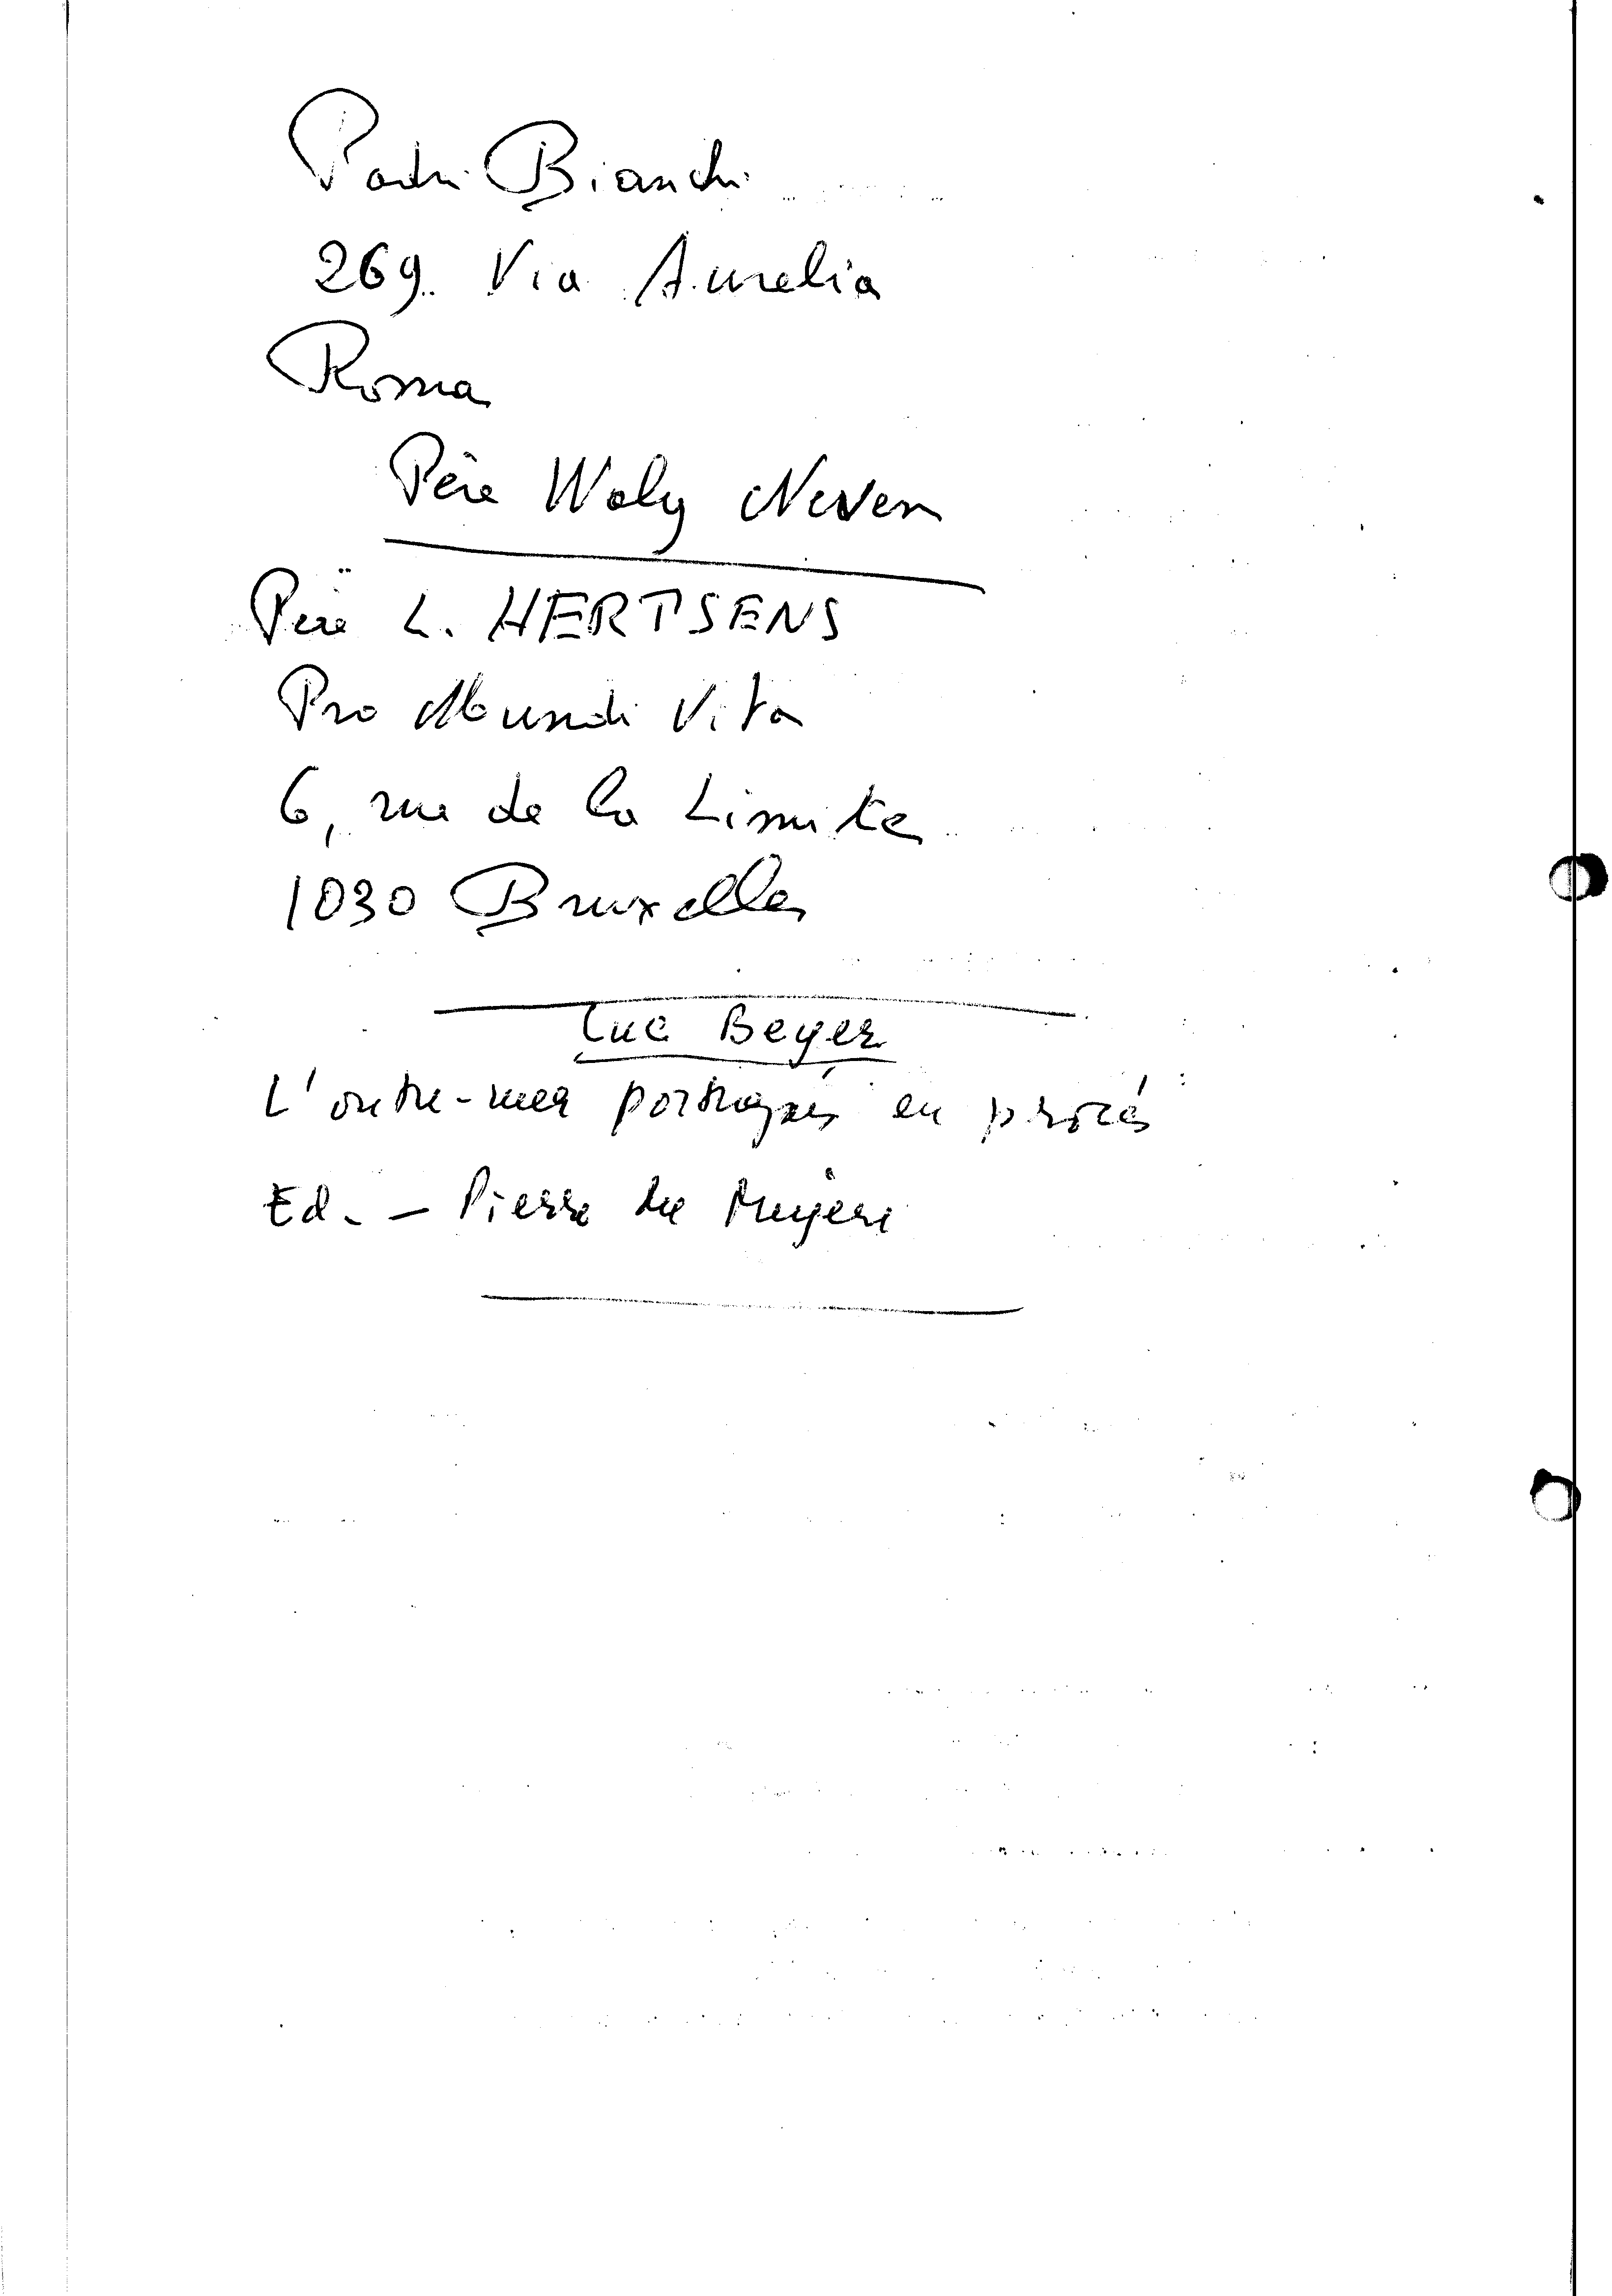 Padri Bianchi
269. Via Aurelia
Roma
Père Waly Neven
Père L. HERTSENS
Pro Mundi Vita
6, rue de la Limite
1030 Bruxelles
Luc Beyer
L'outre-mer portugais en procès
Ed. - Pierre de Meyere